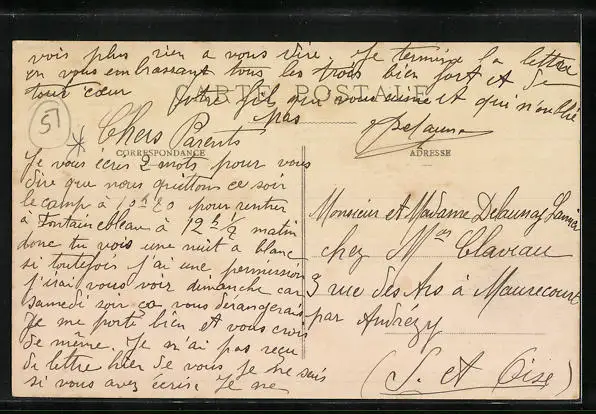 vois plus rien a vous dire Je termine la lettre
en vous embrassant tous les trois bien fort et de
tout cœur votre fils qui vous aime et qui n'oublie
pas
Delaunay
CARTE POSTALE
51
Chers Parents
CORRESPONDANCE
ADRESSE
Je vous écris 2 mots pour vous
dire que nous quittons ce soir
le camp à 10h20 pour rentrer
à Fontainebleau à 12h 1/2 matin
donc tu vois une nuit a blanc
si toutefois j'ai une permission
j'irai vous voir dimanche car
samedi soir ça vous dérangerais
Je me porte bien et vous crois
de même. Je n'ai pas reçu
de lettre hier de vous je ne sais
si vous avez écris. Je ne
Monsieur et Madame Delaunay
chez Mme Claveau
3 rue des Ars à Maurecourt
par Andrézy
(S. et Oise)